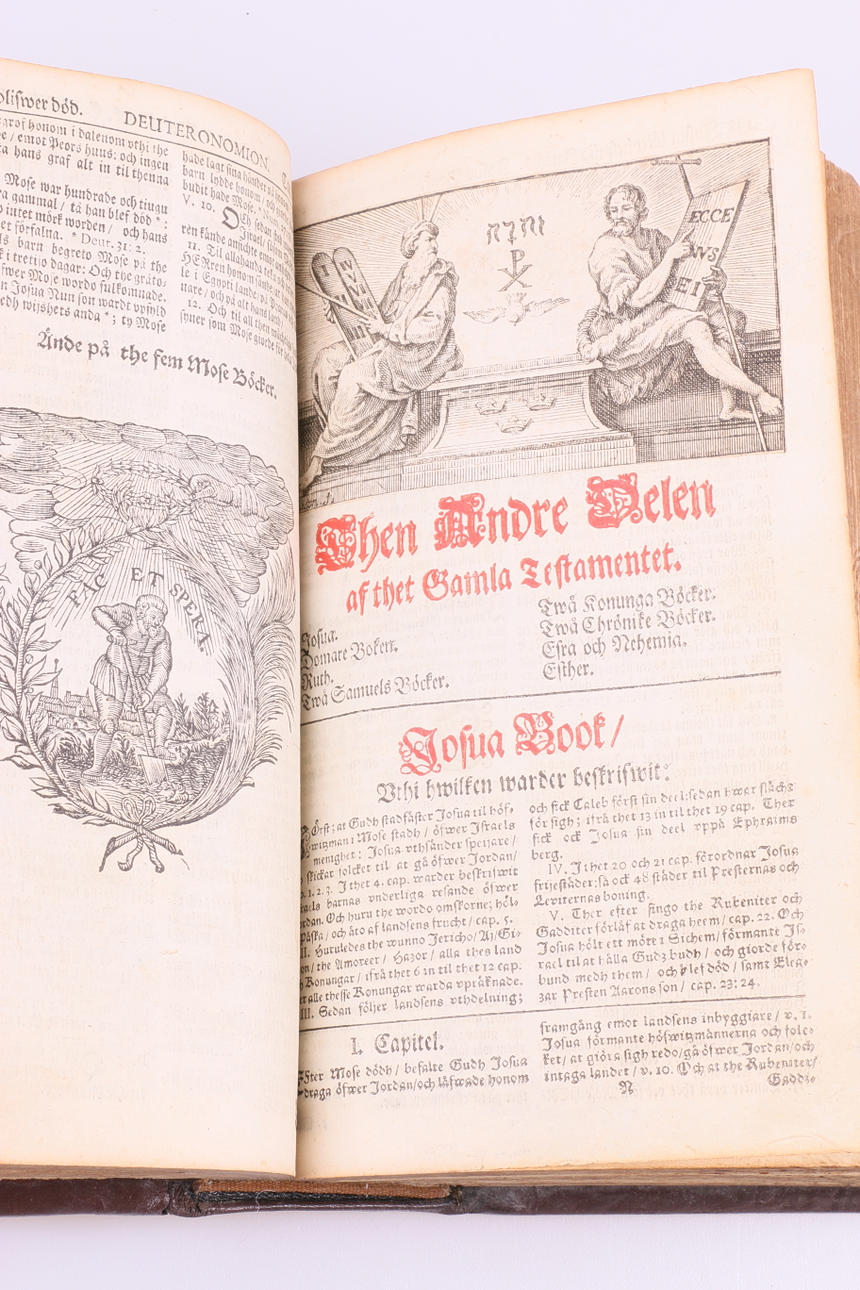 död.
DEUTERONOMION.
graf honom i dalenom vthi the
/ emot Peors huus: och ingen
hans graf alt in til thenna
Mose war hundrade och tiugu
gammal / tå han blef död * :
intet mörk worden / och hans
förfalna. * Deut. 31: 2.
barn begreto Mose på the
i tretijo dagar: Och the gråto-
Mose wordo fulkomnade.
Josua Nun son wardt vpfyld
medh wijshets anda * ; ty Mose
hade lagt sina händer på
barn lydde honom / och
budit hade Mose.
V. 10. OCh sedan
Israel /
ren kände ansichte emot
11. Til allahanda
HERren honom sände
le i Egypti lande / på
nare / och på alt hans
12. Och til all then
syner som Mose giorde för
Ände på the fem Mose Böcker.
FAC ET SPERA
יהוה
ECCE
NVS
EI
Then Andre Delen
af thet Gamla Testamentet.
Josua.
Domare Boken.
Ruth.
Twå Samuels Böcker.
Twå Konunga Böcker.
Twå Chrönike Böcker.
Esra och Nehemia.
Esther.
Josua Book/
Vthi hwilken warder beskrifwit:
Först; at Gudh stadfäster Josua til höf-
witzman i Mose stadh / öfwer Israels
menighet: Josua vthsänder speijare/
skickar folcket til at gå öfwer Jordan/
1. 2. 3. I thet 4. cap. warder beskrifwit
barnas vnderliga resande öfwer
Och huru the wordo omskorne; höl-
Påska / och åto af landsens frucht / cap. 5.
II. Huruledes the wunno Jericho / Aj / Gi-
on / the Amoreer / Hazor / alla thes land
Konungar / ifrå thet 6 in til thet 12 cap.
alle thesse Konungar warda vpräknade.
III. Sedan följer landsens vthdelning;
och fick Caleb först sin deel: sedan hwar slächt
för sigh; ifrå thet 13 in til thet 19 cap. Ther
fick ock Josua sin deel vppå Ephraims
berg.
IV. I thet 20 och 21 cap. förordnar Josua
frijestäder: så ock 48 städer til Presternas och
Leviternas boning.
V. Ther efter fingo the Rubeniter och
Gadditer förlåf at draga heem / cap. 22. Och
Josua hölt ett möte i Sichem / förmante Is-
rael til at hålla Gudz budh / och giorde för-
bund medh them / och blef död / samt Elea-
zar Presten Aarons son / cap. 23: 24.
I. Capitel.
Efter Mose dödh / befalte Gudh Josua
draga öfwer Jordan / och låfwade honom
framgång emot landsens inbyggiare / v. 1.
Josua förmante höfwitzmännerna och folc-
ket / at giöra sigh redo / gå öfwer Jordan / och
intaga landet / v. 10. Och at the Rubeniter/
N
Gaddi-